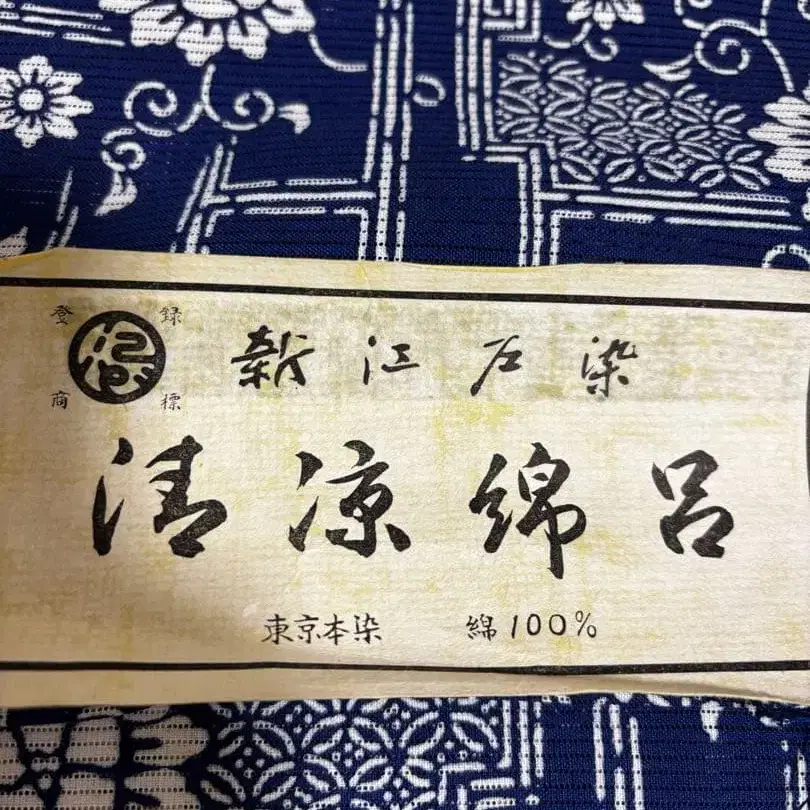 登録
商標
新江戸染
清涼綿呂
東京本染 綿100%